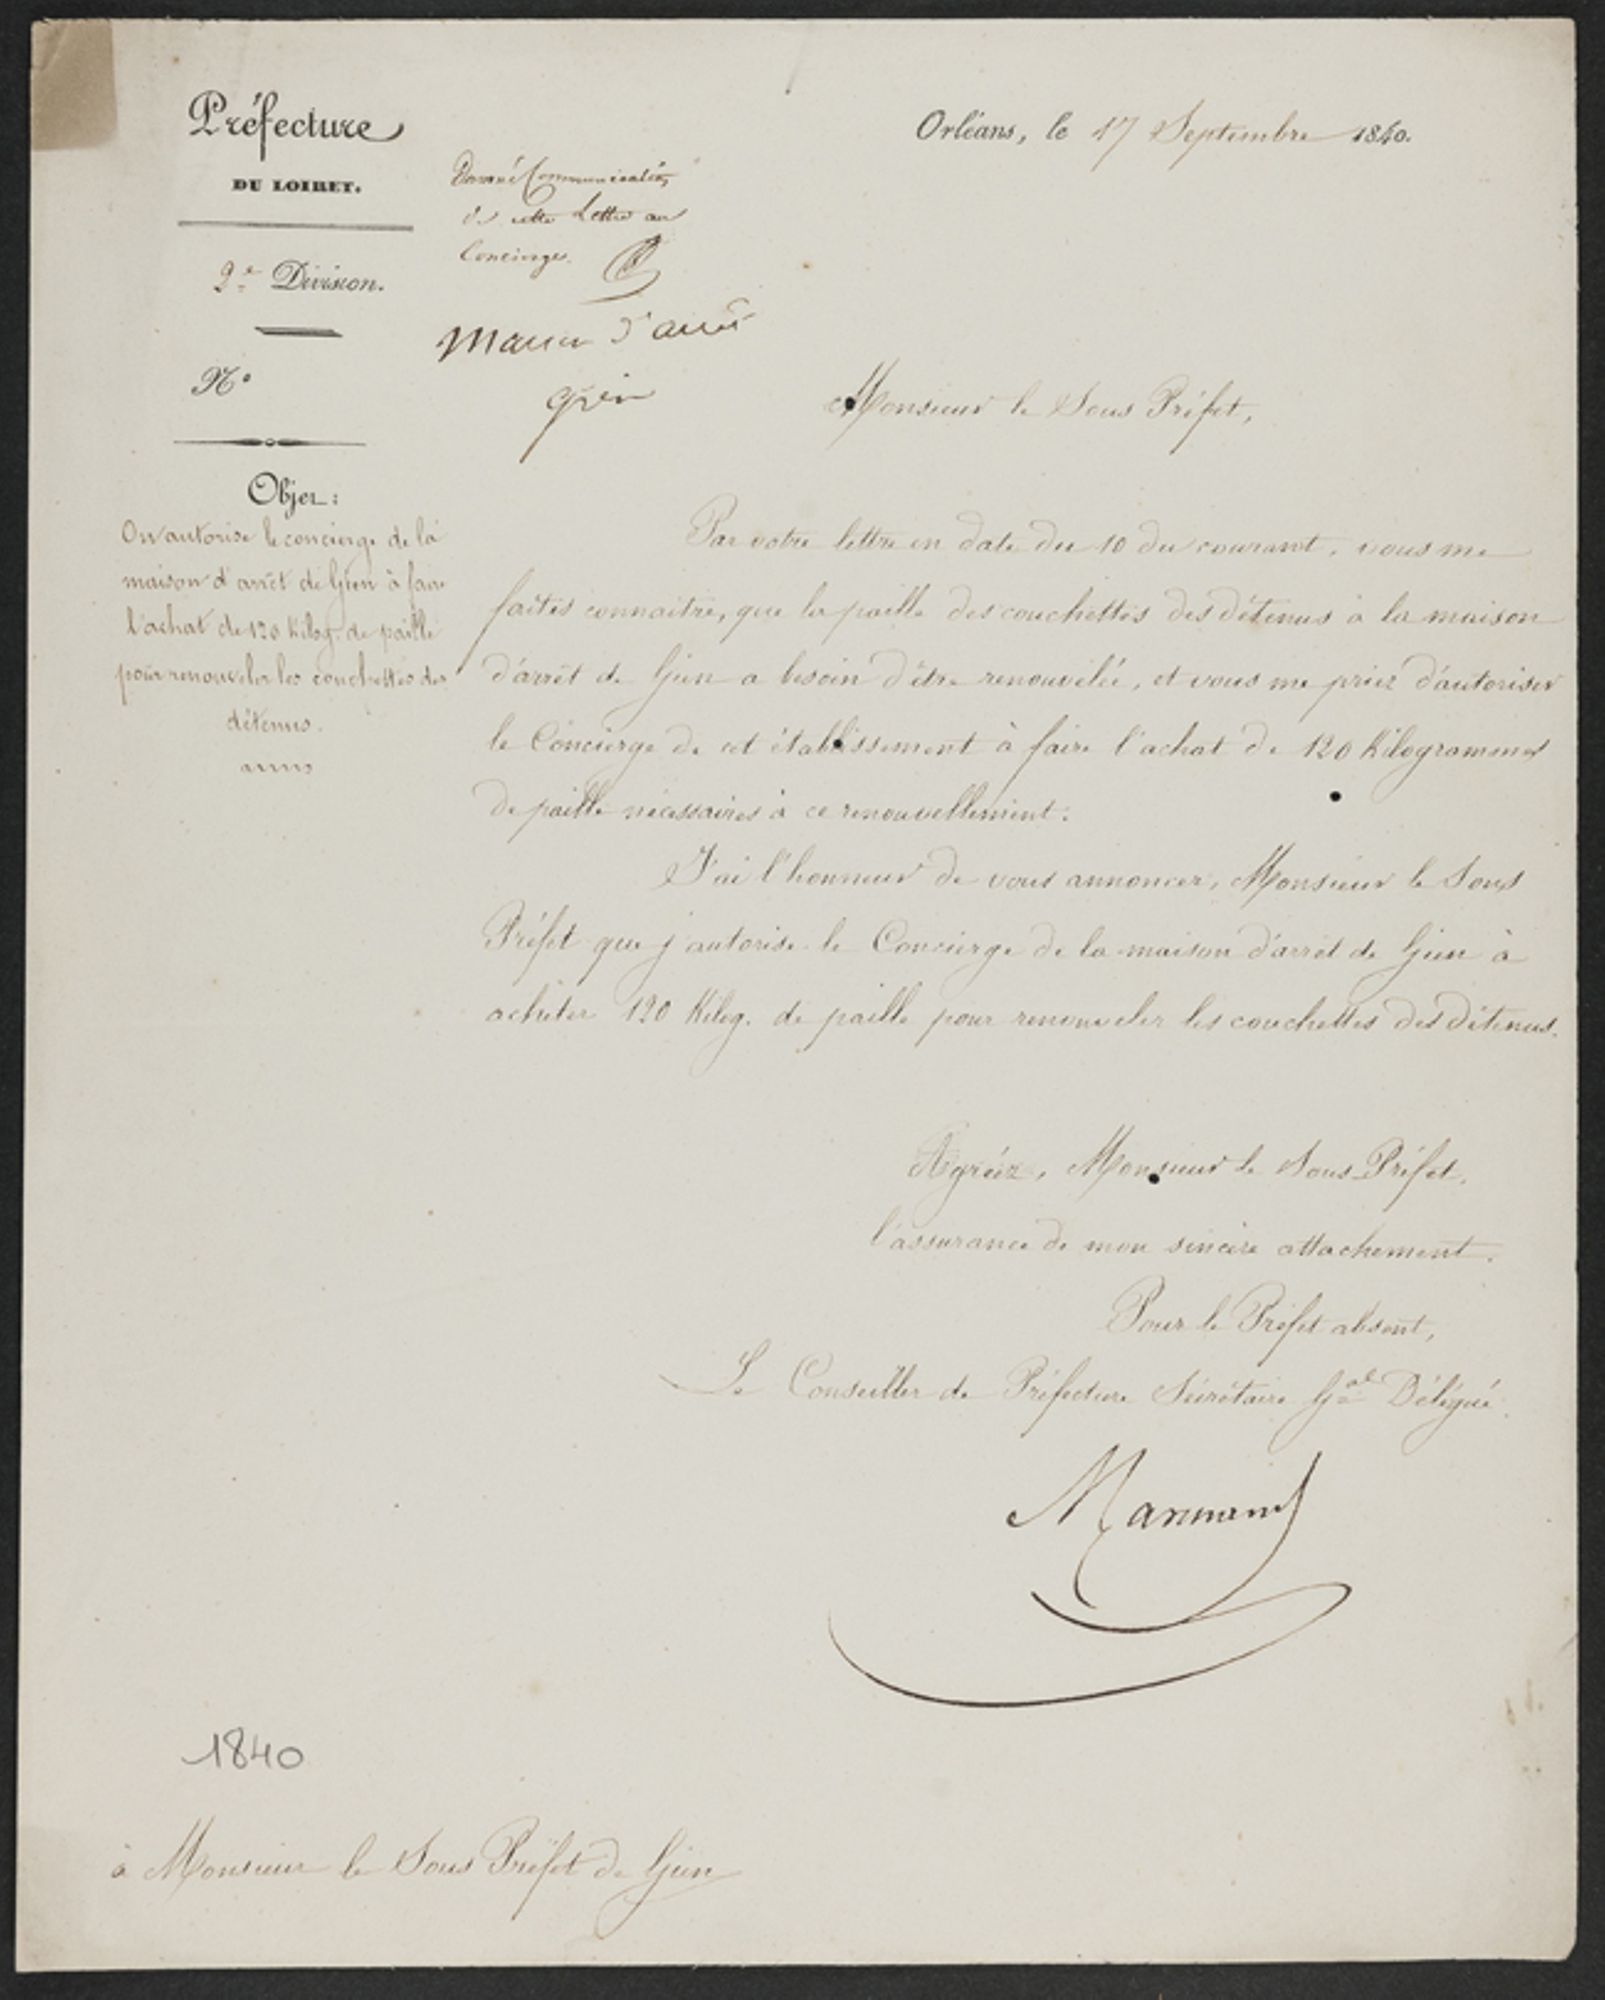 Préfecture
DU LOIRET.
2e Division.
No
Objet :
On autorise le concierge de la
maison d'arrêt de Gien à faire
l'achat de 120 Kilog. de paille
pour renouveler les couchettes des
détenus.
Donné Communication
de cette Lettre au
Concierge.
Maison d'arrêt
Gien
Orléans, le 17 Septembre 1840.
Monsieur le Sous Préfet,
Par votre lettre en date du 10 du courant, vous me
faites connaitre, que la paille des couchettes des détenus à la maison
d'arrêt de Gien a besoin d'être renouvelée, et vous me priez d'autoriser
le Concierge de cet établissement à faire l'achat de 120 Kilogrammes
de paille nécessaires à ce renouvellement.
J'ai l'honneur de vous annoncer, Monsieur le Sous
Préfet que j'autorise le Concierge de la maison d'arrêt de Gien à
acheter 120 Kilog. de paille pour renouveler les couchettes des détenus.
Agréez, Monsieur le Sous Préfet,
l'assurance de mon sincère attachement.
Pour le Préfet absent,
Le Conseiller de Préfecture Secrétaire Gal Délégué.
1840
à Monsieur le Sous Préfet de Gien